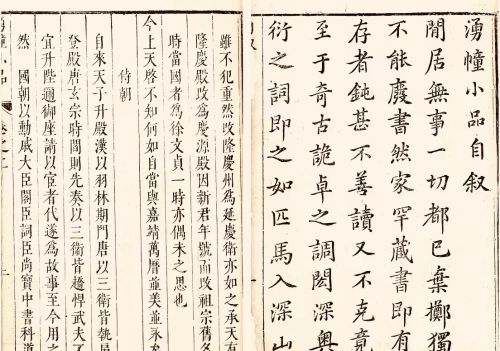 湧幢小品自叙
閒居無事一切都已棄擲獨
不能廢書然家罕藏書即有
存者鈍甚不善讀又不克竟
至于奇古詭卓之調閎深奥
衍之詞即之如匹馬入深山
雖不犯重然改隆慶州爲延慶衛亦如之承天有
隆慶殿改爲慶源殿因新君年號而改祖宗舊
時當國者爲徐文貞一時亦偶未之思也
今上天啓不知何如自當與嘉靖萬曆並美並永
侍朝
自來天子升殿漢以羽林期門唐以三衛皆執
登殿唐玄宗時間則先奏以三衛皆趫悍武夫
宜升陛邇御座請以宦者代遂爲故事至今用
然　國朝以勳戚大臣閣臣詞臣尚寶中書科道
幢小品